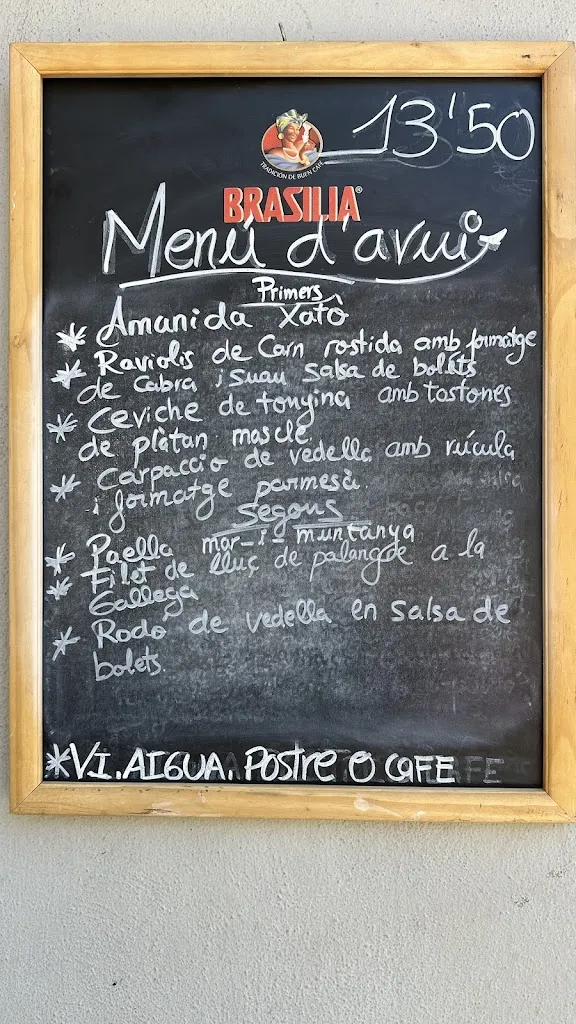 13'50
TRADICIÓN DE BUEN CAFÉ
BRASILIA®
Menú d'avui
Primers
* Amanida Xatô
* Raviolis de Carn rostida amb formatge
de cabra i suau salsa de bolets
* Ceviche de tonyina amb tostones
de plàtan mascle
* Carpaccio de vedella amb rúcula
i formatge parmesà.
Segons
* Paella mar-i-muntanya
* Filet de lluç de palangre a la
Gallega
* Rodó de vedella en salsa de
bolets.
*VI. AIGUA. POSTRE O CAFE